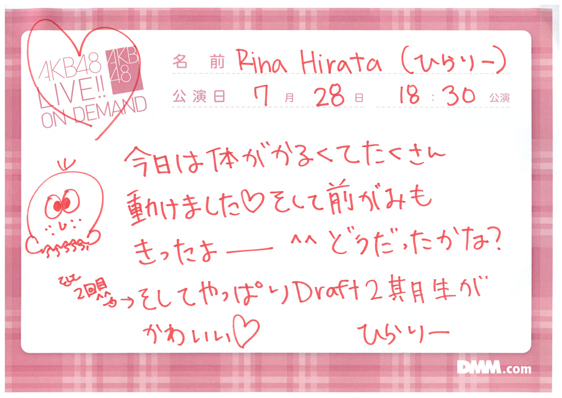 AKB48
LIVE!!
ON DEMAND
AKB
48
名 前 Rina Hirata (ひらりー)
公演日 7 月 28 日 18:30 公演
今日は体がかるくてたくさん
動けました♡そして前がみも
きったよ── ^^ どうだったかな?
2回目
→そしてやっぱりDraft2期生が
かわいい♡ ひらりー
DMM.com